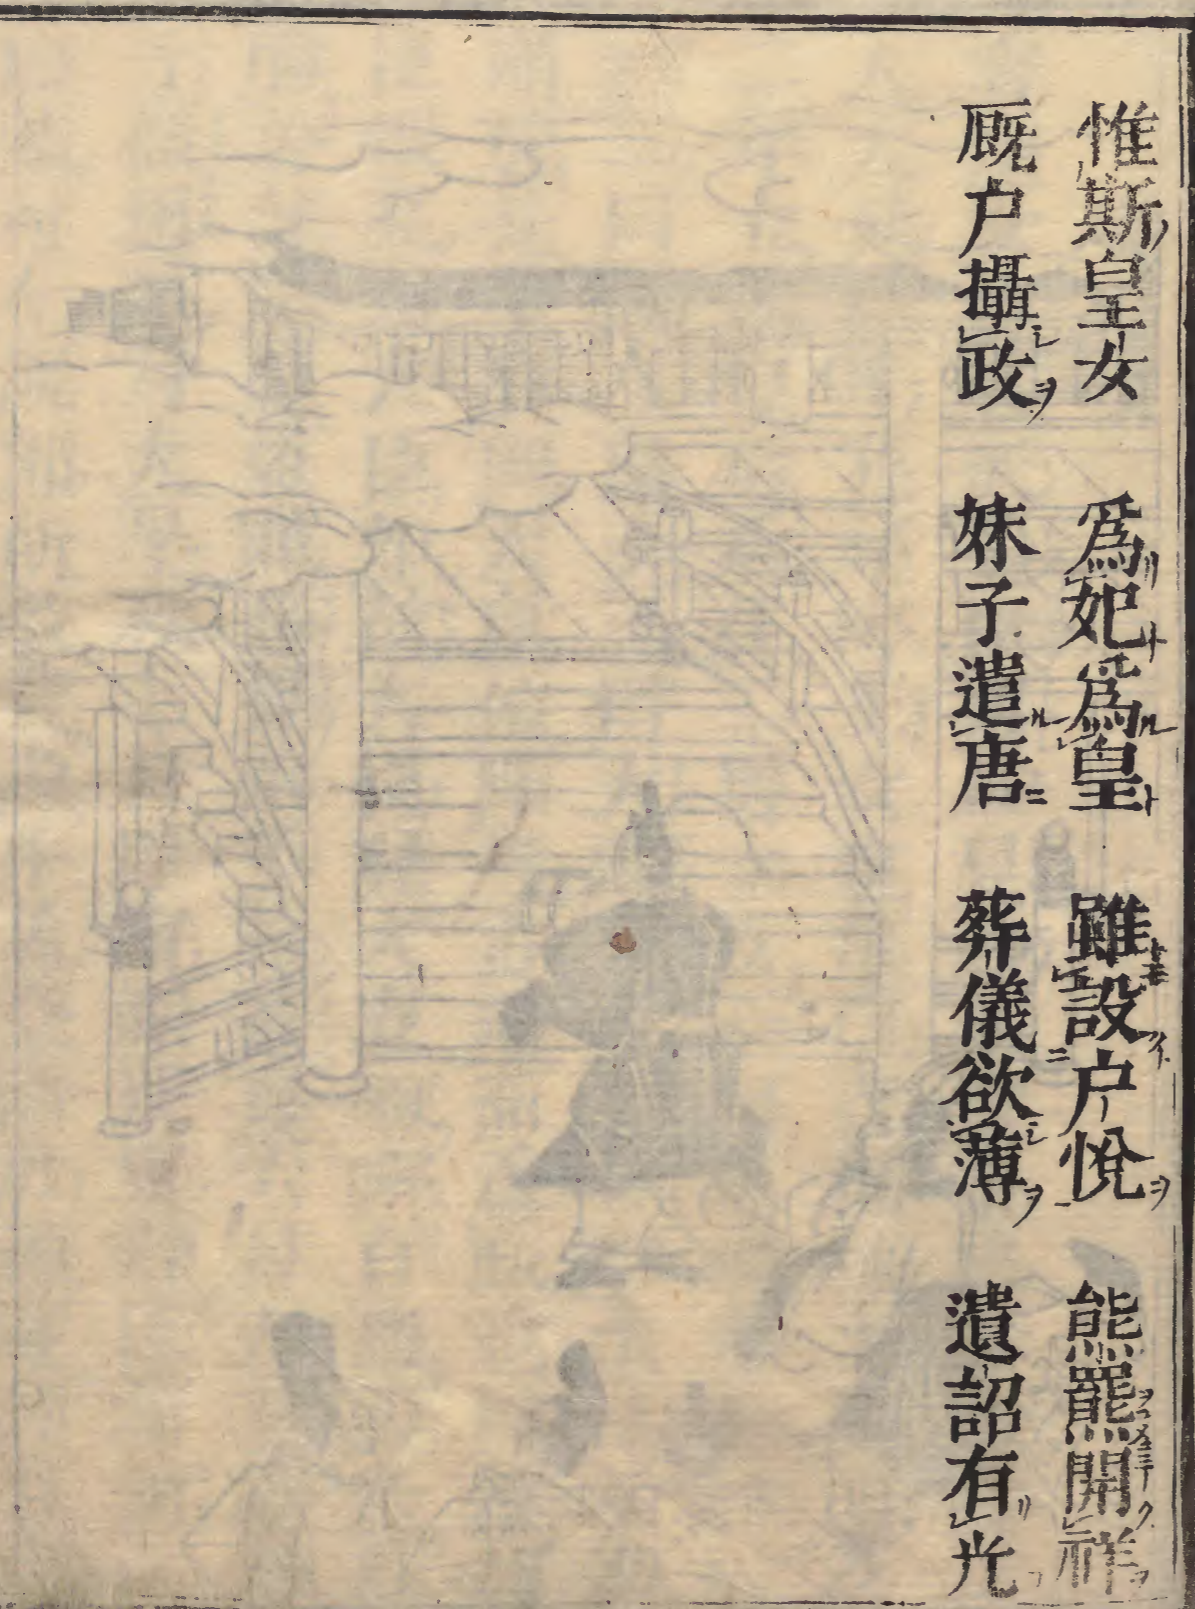 惟斯皇女 爲妃爲皇 雖設戸悅 熊羆開祥
厩戸攝政 妹子遣唐 葬儀欲薄 遺詔有光